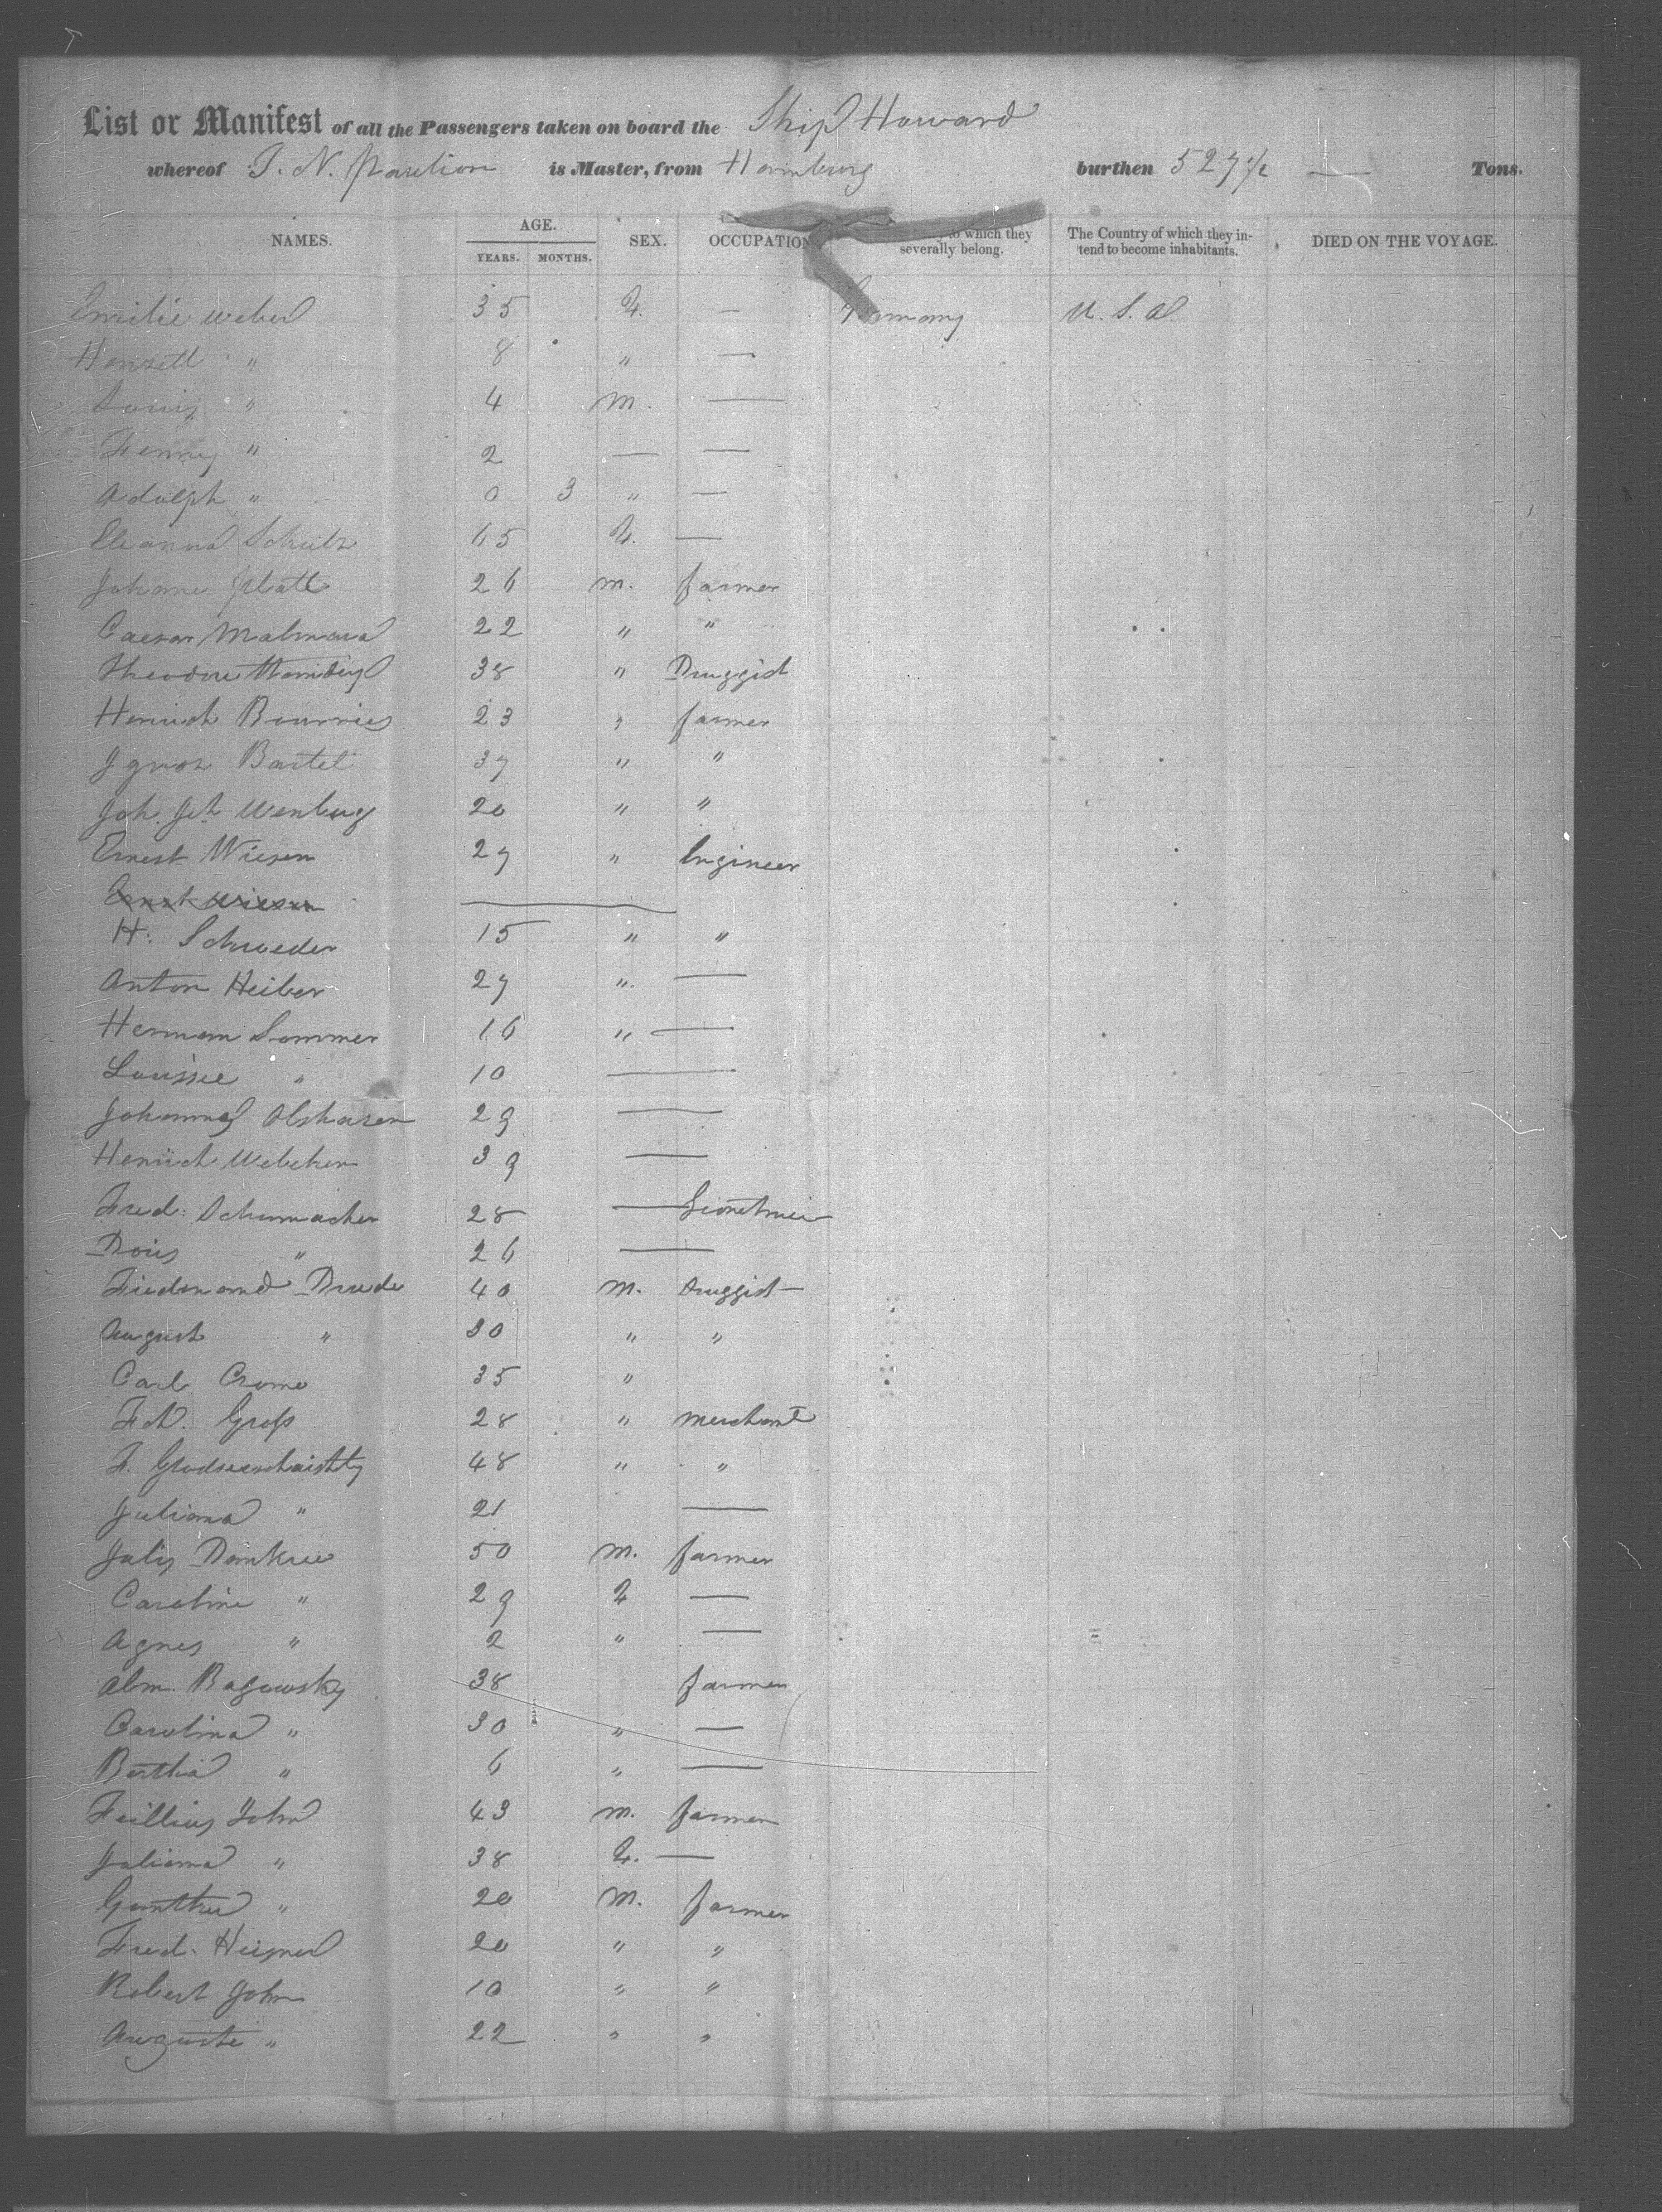 List or Manifest of all the Passengers taken on board the Ship Howard
whereof J. N. is Master, from Hamburg burthen 527 Tons.
NAMES. AGE. YEARS. MONTHS. SEX. OCCUPATION to which they severally belong. The Country of which they intend to become inhabitants. DIED ON THE VOYAGE.
Emilie Weber 35 F. — Germany U. S. A.
" 8 " —
Louis " 4 m. —
Fenny " 2 — —
Adolph " 0 3 " —
Eleanna Schultz 65 F. —
Johann Platt 26 m. farmer
Caesar 22 " "
Theodore 38 " Druggist
Heinrich 23 " farmer
Ignatz Bartel 37 " "
Joh. 20 " "
Ernest Wiesen 27 " Engineer
Ernst Wiesen —
H. Schroeder 15 " "
Anton Heiber 27 " —
Herman Sommer 16 " —
Louisie " 10 —
Johannes Olshasen 29 —
Heinrich 39 —
Fred: Schumacher 28 —
Doris " 26 —
Drude 40 m. Druggist —
August " 30 " "
Carl Crome 35 "
Fch. Gross 28 " merchant
F. 48 " "
Juliana " 21 —
50 m. farmer
Caroline " 29 F —
Agnes " 2 " —
Abm. Bagowsky 38 farmer
Carolina " 30 " —
Bertha " 6 " —
John 43 m. farmer
Juliana " 38 F. —
Gunther " 20 m. farmer
Fred. 20 " "
Robert John 10 " "
Auguste " 22 " "